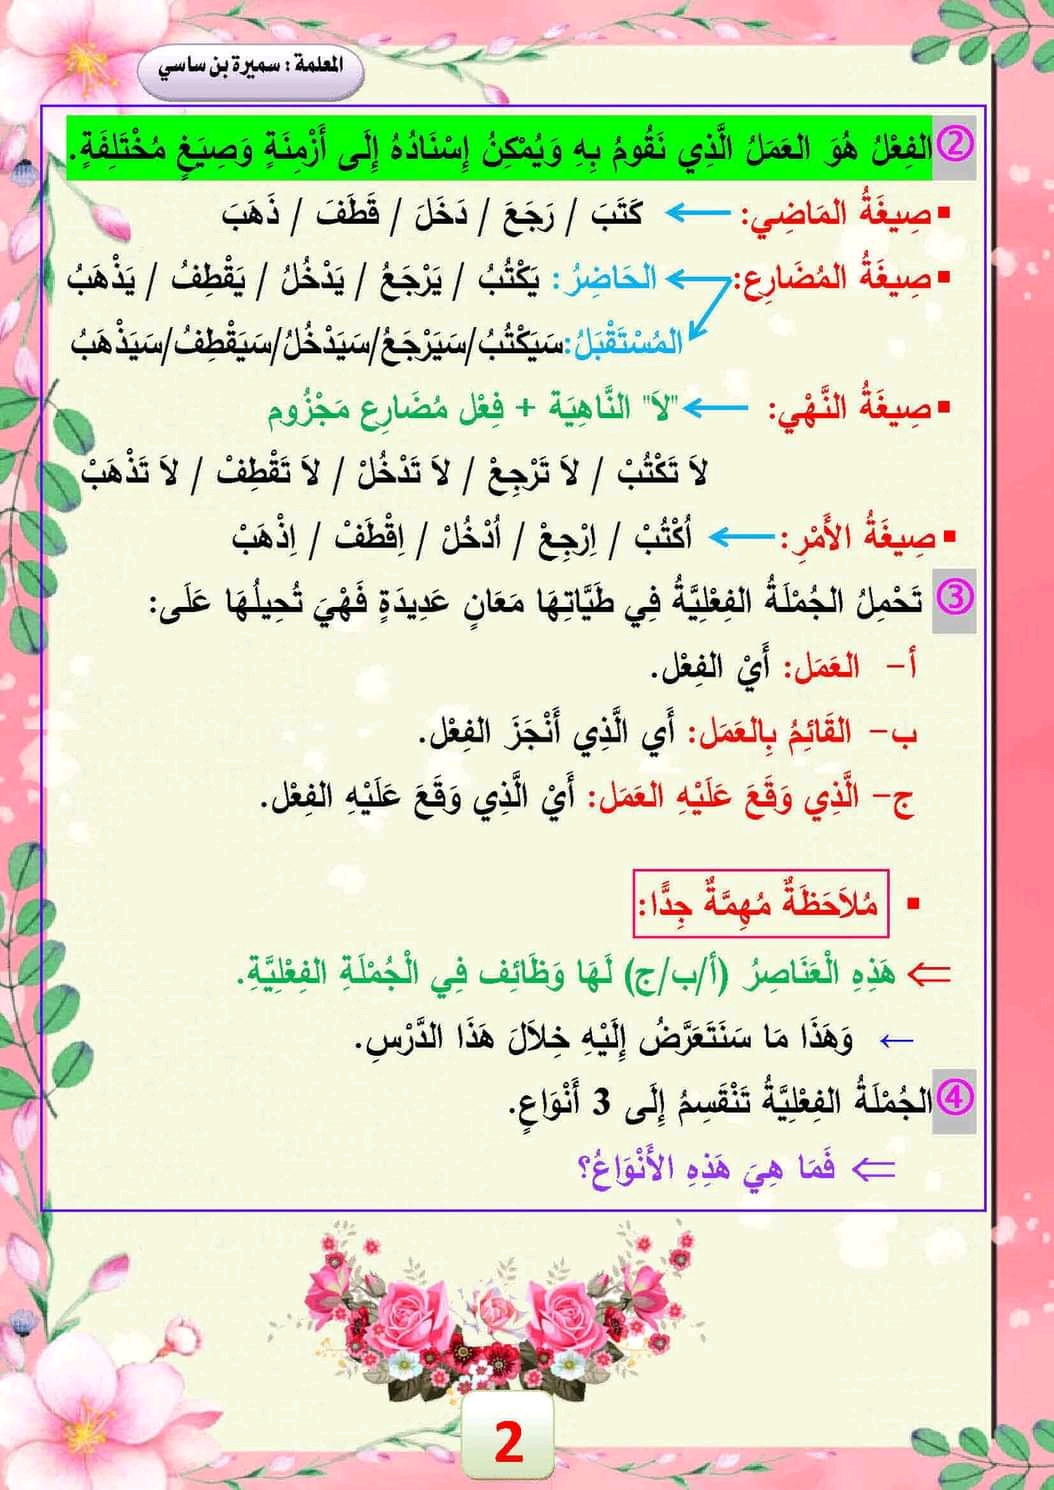 المعلمة : سميرة بن ساسي
② الفِعْلُ هُوَ العَمَلُ الَّذِي نَقُومُ بِهِ وَيُمْكِنُ إِسْنَادُهُ إِلَى أَزْمِنَةٍ وَصِيَغٍ مُخْتَلِفَةٍ.
▪ صِيغَةُ المَاضِي: ← كَتَبَ / رَجَعَ / دَخَلَ / قَطَفَ / ذَهَبَ
▪ صِيغَةُ المُضَارِع: ← الحَاضِرُ: يَكْتُبُ / يَرْجَعُ / يَدْخُلُ / يَقْطِفُ / يَذْهَبُ
المُسْتَقْبَلُ: سَيَكْتُبُ/سَيَرْجَعُ/سَيَدْخُلُ/سَيَقْطِفُ/سَيَذْهَبُ
▪ صِيغَةُ النَّهْي: ← "لاَ" النَّاهِيَة + فِعْل مُضَارِع مَجْزُوم
لاَ تَكْتُبْ / لاَ تَرْجِعْ / لاَ تَدْخُلْ / لاَ تَقْطِفْ / لاَ تَذْهَبْ
▪ صِيغَةُ الأَمْرِ: ← اُكْتُبْ / اِرْجِعْ / اُدْخُلْ / اِقْطَفْ / اِذْهَبْ
③ تَحْمِلُ الجُمْلَةُ الفِعْلِيَّةُ فِي طَيَّاتِهَا مَعَانٍ عَدِيدَةٍ فَهْيَ تُحِيلُهَا عَلَى:
أ- العَمَل: أَيْ الفِعْل.
ب- القَائِمُ بِالعَمَل: أَي الَّذِي أَنْجَزَ الفِعْل.
ج- الَّذِي وَقَعَ عَلَيْهِ العَمَل: أَيْ الَّذِي وَقَعَ عَلَيْهِ الفِعْل.
▪ مُلاَحَظَةٌ مُهِمَّةٌ جِدًّا:
⇐ هَذِهِ الْعَنَاصِرُ (أ/ب/ج) لَهَا وَظَائِف فِي الْجُمْلَةِ الفِعْلِيَّةِ.
← وَهَذَا مَا سَنَتَعَرَّضُ إِلَيْهِ خِلاَلَ هَذَا الدَّرْسِ.
④ الجُمْلَةُ الفِعْلِيَّةُ تَنْقَسِمُ إِلَى 3 أَنْوَاعٍ.
⇐ فَمَا هِيَ هَذِهِ الأَنْوَاعُ؟
2